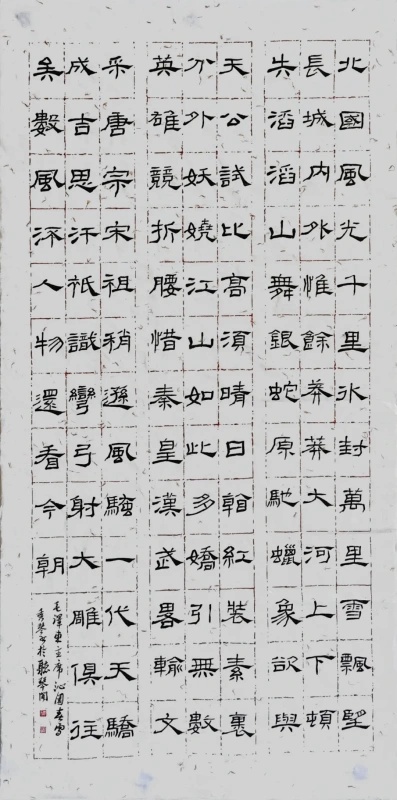 北國風光千里冰封萬里雪飄望
長城内外惟餘莽莽大河上下頓
失滔滔山舞銀蛇原馳蠟象欲與
天公試比高須晴日看紅裝素裹
分外妖嬈江山如此多嬌引無數
英雄競折腰惜秦皇漢武畧輸文
采唐宗宋祖稍遜風騷一代天驕
成吉思汗祇識彎弓射大雕俱往
矣數風流人物還看今朝
毛澤東主席沁園春雪
秀琴书於聽琴閣